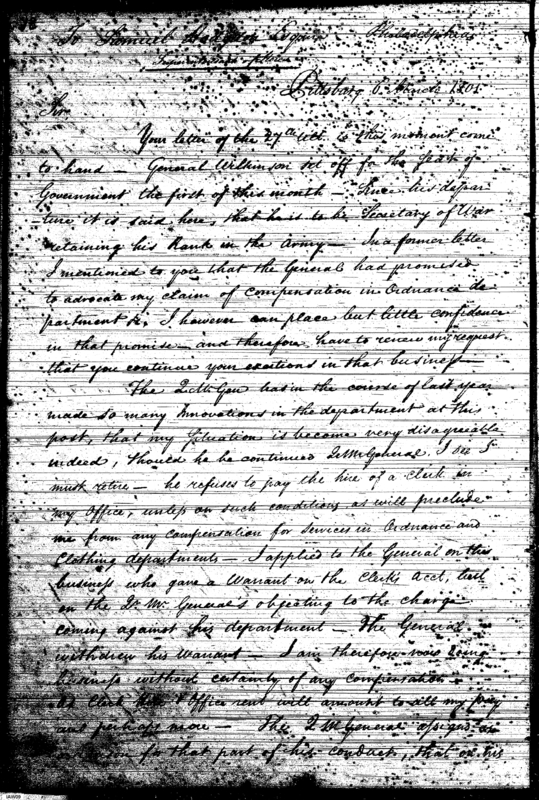 To Samuel Hodgdon Esqr Philadelphia
Pittsburg 6 March 1801
Sir
Your letter of the 27th ult to this moment come
to hand — General Wilkinson set off for the Seat of
Government the first of this month Since his depar
-ture it is said here, that he is to be Secretary of War
retaining his Rank in the Army — In a former letter
I mentioned to you that the General had promised
to advocate my claim of compensation in Ordnance de
partment &c, I however can place but little confidence
in that promise — and therefore have to renew my request
that you continue your exertions in that business —
The Q. M. Gen has in the course of last year
made so many Innovations in the department at this
post, that my situation is become very disagreeable
indeed, should he be continued Q M General I
must retire — he refuses to pay the hire of a Clerk in
my Office, unless on such conditions, as will preclude
me from any compensation for services in Ordnance and
Clothing departments — I applied to the General on this
business who gave a Warrant on the Clerks Acct, but
on the Qr Mr General's objecting to the charge
coming against his department — The General
withdrew his Warrant — I am therefore now doing
business without certainty of any compensation
as Clerk Hire & Office rent will amount to all my pay
and perhaps more — The Q M General assigns as
for that part of his conduct, that on his